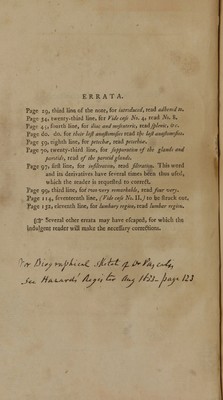 ERRATA.
Page 29, third line of the note, for introduced, read adhered to.
Page 34, twenty-third line, for Vide case No. 4, read No. 8.
Page 41, fourth line, for iliac and mesenteric, read splenic, &c.
Page do. do. for their last anastomosies read the last anastomosies.
Page 59, eighth line, for præchæ, read præchiæ.
Page 70, twenty-third line, for suppuration of the glands and
parotids, read of the parotid glands.
Page 97, first line, for infiltration, read filtration. This word
and its derivatives have several times been thus used,
which the reader is requested to correct.
Page 99, third line, for two very remarkable, read four very.
Page 114, seventeenth line, (Vide case No. II.) to be struck out.
Page 132, eleventh line, for lumbary region, read lumbar region.
☞ Several other errata may have escaped, for which the
indulgent reader will make the necessary corrections.
For Biographical Sketch of Dr Pascalis,
See Hazard's Register Aug 1833 - page 123